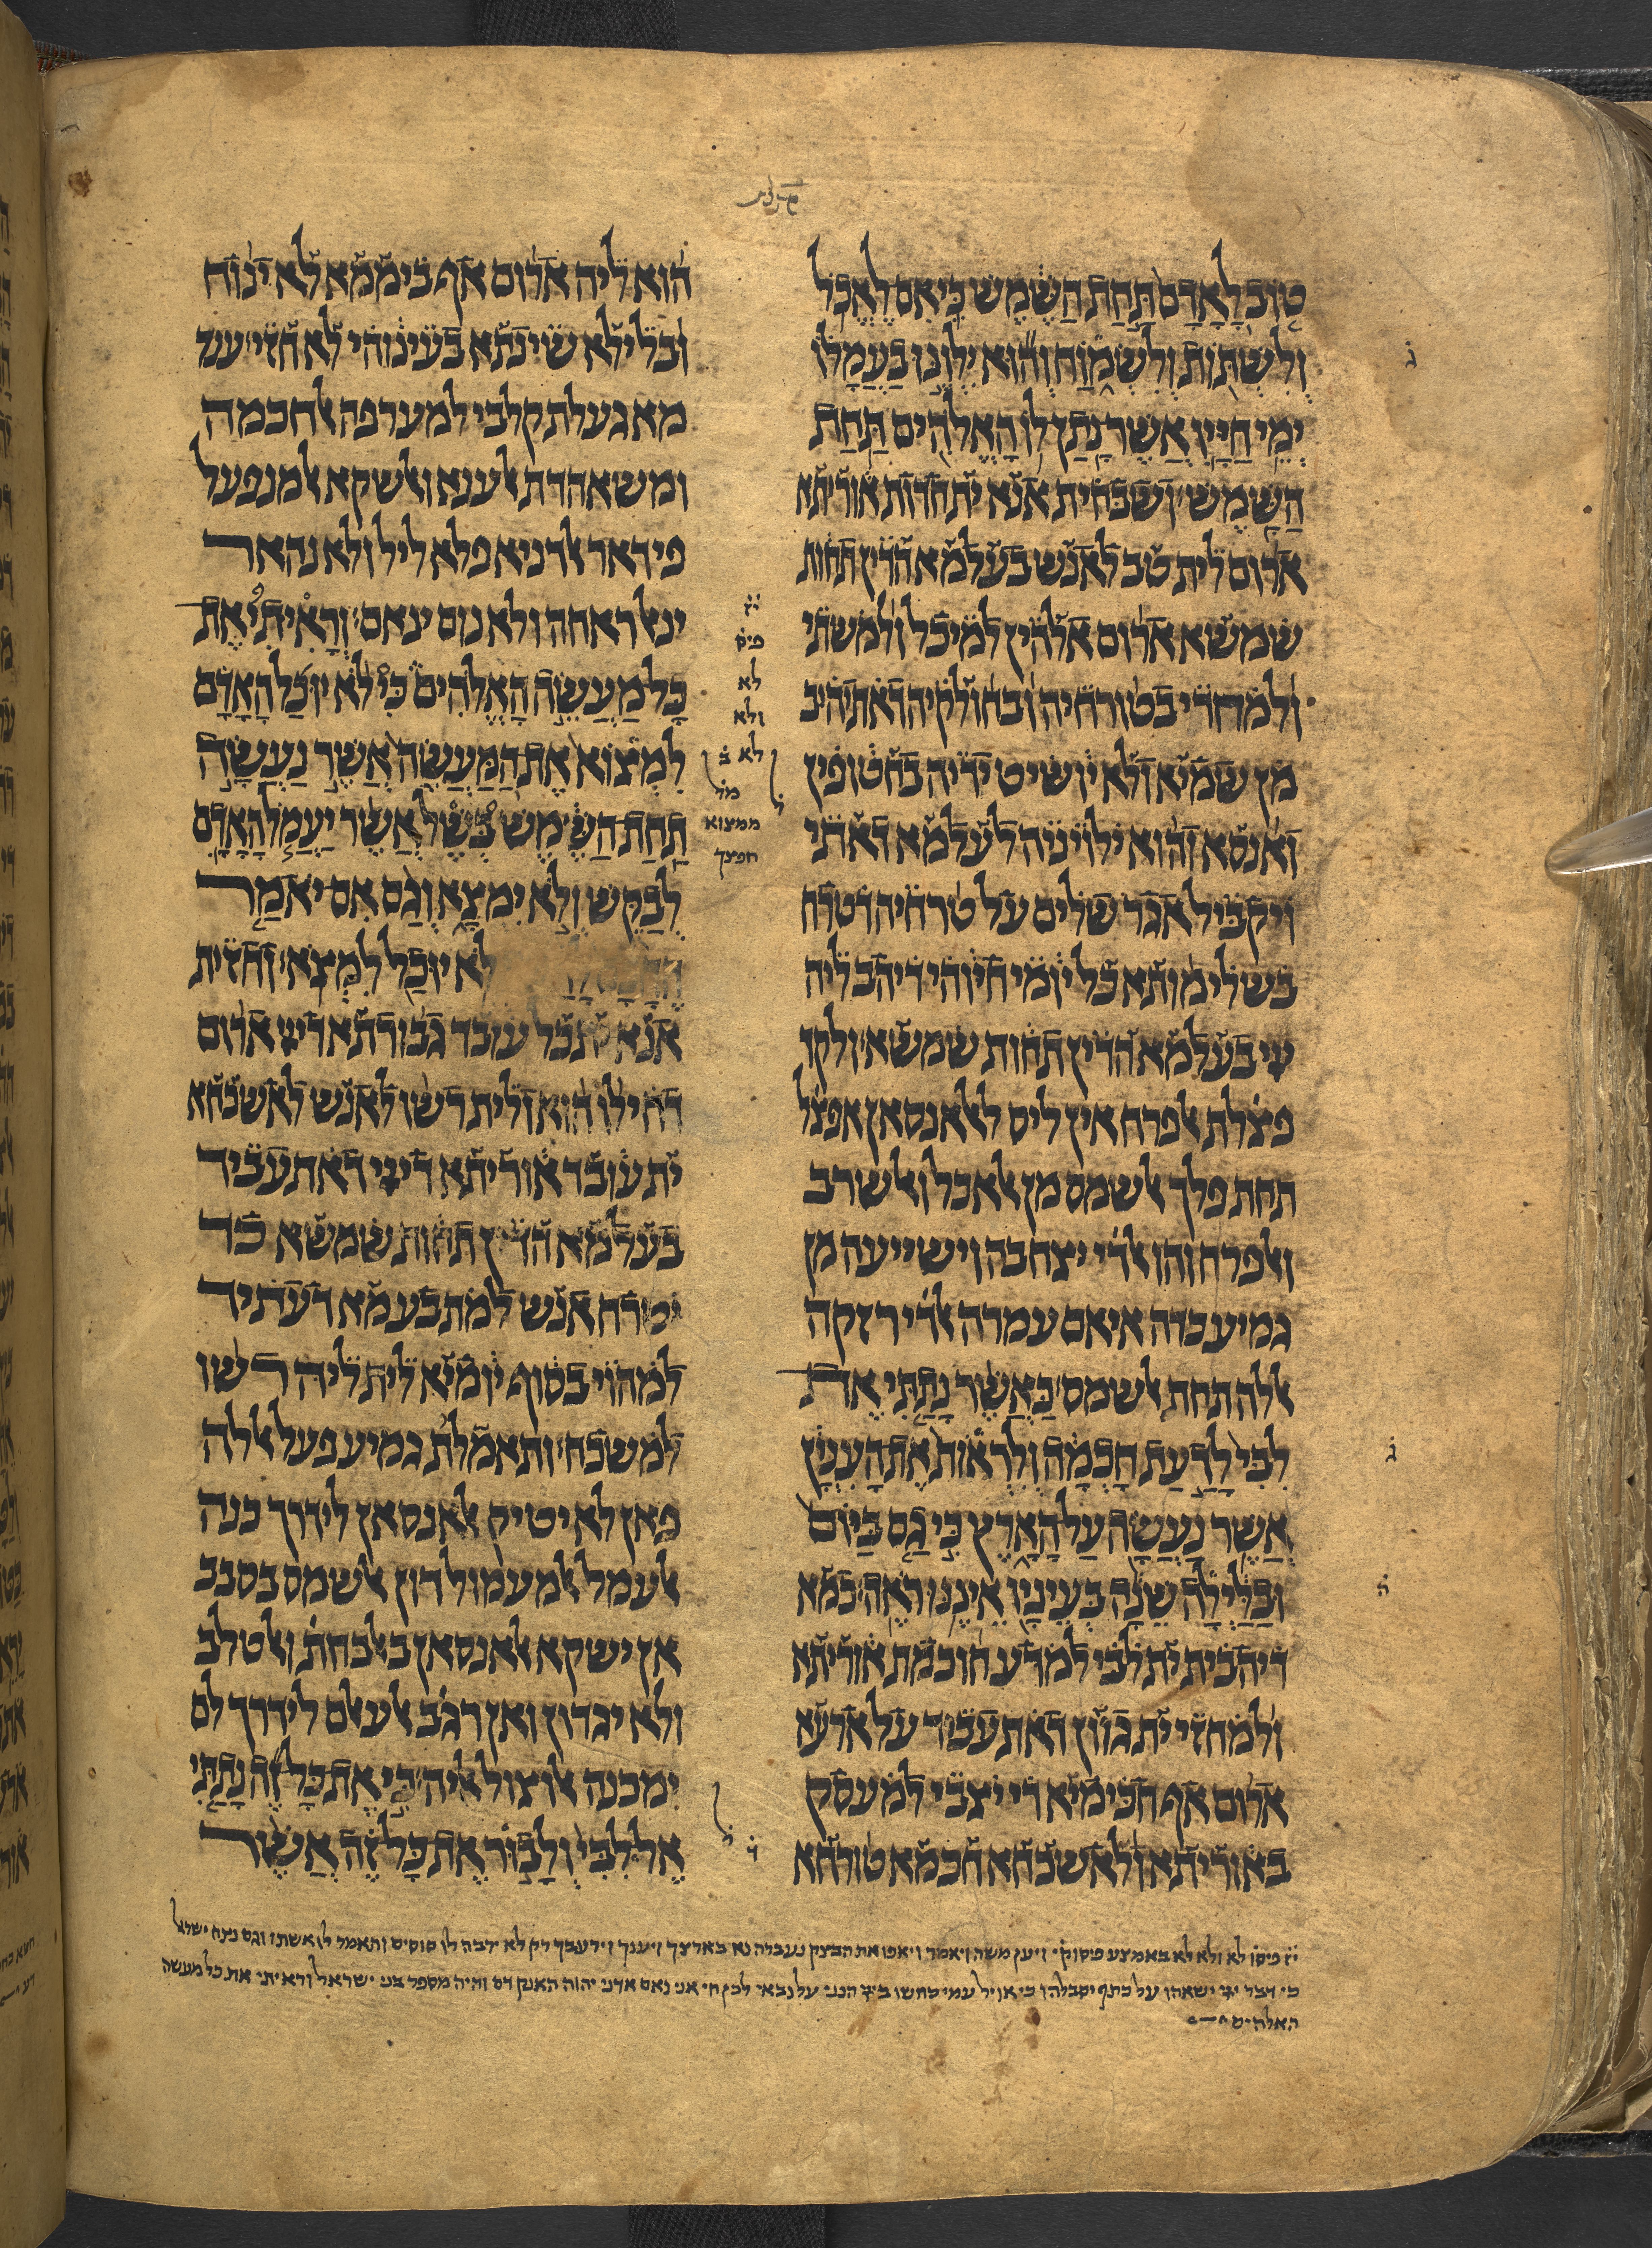 טוב לאדם תחת השמש כי אם לאכל
ולשתות ולשמוח והוא ילונו בעמלו
ימי חייו אשר נתן לו האלהים תחת
השמש׃ ושבחית אנא ית חדות אוריתא
ארום לית טב לאנש בעלמא הדין תחות
שמשא ארום אלהין למיכל ולמשתי
ולמחדי בטורחיה ובחולקיה דאתיהיב
מן שמיא ולא יושיט ידיה בחטופין
ואנסא והוא ילוינה לעלמא דאתי
ויקביל אגר שלים על טרחיה דטרח
בשלימותא כל יומי חיוהי דיהב ליה
ייי בעלמא הדין תחות שמשא׃ ולקד
פצלת אלפרח אין ליס ללאנסאן אפצל
תחת פלך אלשמס מן אלאכל ואלשרב
ואלפרח והו אלדי יצחבה וישייעה מן
גמיע כדה איאם עמרה אלדי רזקה
אללה תחת אלשמס׃ כאשר נתתי את
לבי לדעת חכמה ולראות את הענין
אשר נעשה על הארץ כי גם ביום
ובלילה שנה בעיניו איננו ראה׃ כמא
דיהבית ית לבי למדע חוכמת אוריתא
ולמחזי ית גוון דאתעביד על ארעא
ארום אף חכימיא די יצבי למעסק
באוריתא ולאשכחא חכמא טורחא
הוא ליה ארום אף בימමא לא ינוח
ובליליא שינתא בעינוהי לא חזי׃ ענד
מא געלת קלבי למערפה אלחכמה
ומשאהדת אלענא ואלשקא אלמנפעל
פי דאר אלדניא פלא ליל ולא נהאר
ינאל ראחה ולא נום ינאם׃ וראיתי את
כל מעשה האלהים כי לא יוכל האדם
למצוא את המעשה אשר נעשה
תחת השמש בשל אשר יעמל האדם
לבקש ולא ימצא וגם אם יאמר
לא יוכל למצא׃ וחזית
אנא ית כל עובד גבורתא דייי ארום
דחילו הוא ולית רשו לאנש לאשכחא
ית עובד אוריתא דייי דאתעביד
בעלמא הדין תחות שמשא כד
יטרח אנש למתבע מא דעתיד
למהוי בסוף יומיא לית ליה רשו
למשכח׃ ותאמלת גמיע פעל אללה
פאן לא יטיק אלאנסאן לידרך כנה
אלעמל אלמעמול דון אלשמס בסבב
אן ישקא אלאנסאן באלבחת ואלטלב
ולא יגדון ואן רגב אלעאלם לידרך לם
ימכנה אלוצול אליה׃ כי את כל זה נתתי
אל לבי ולבור את כל זה אשר
ג
ג
ה
יז
פיס
לא
ולא
לא ב
ממצוא
חפצך
ל
ד
יז פיסו לא ולא לא באמצע פיסוק׳ ויען משה ויאמר ויאפו את הבצק נעברה נא בארצך ויענך וירעבך רק לא ירבה לו סוסים ותאמר לו אשתו וגם נצח ישראל
כי דבר ישאהו על כתף יסבלהו כי אויל עמי כחשו ביי׳ הנני על נבאי לכן חי אני נאם אדני יהוה האנק דם והיה מספר בני ישראל וראיתי את כל מעשה
האלהים